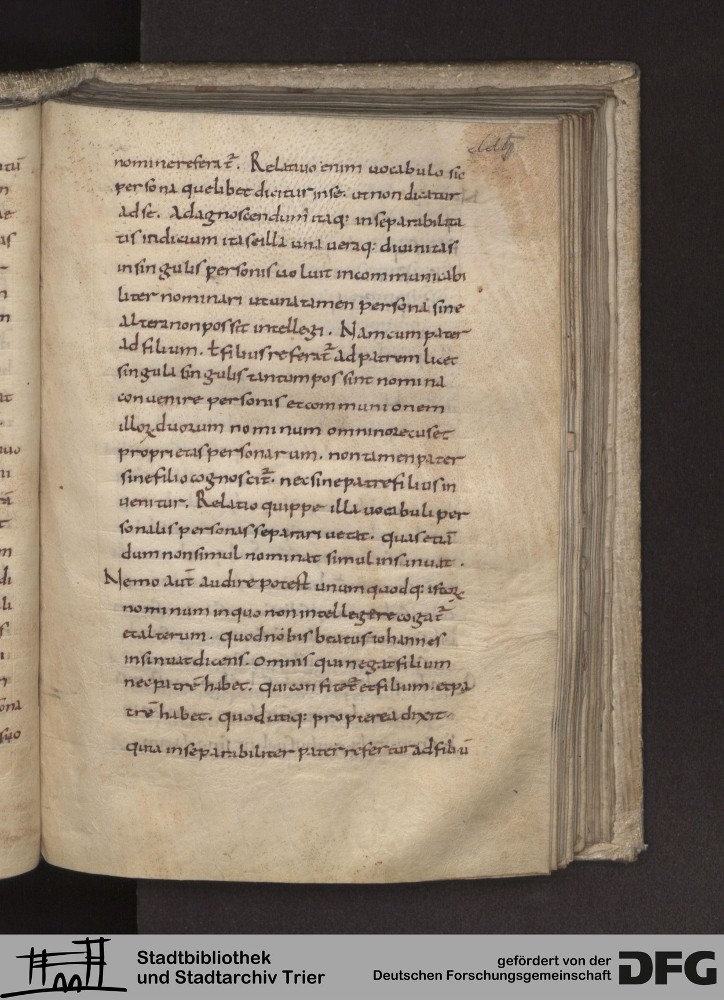 nomine referat̄. Relatiuo enim uocabulo sic
persona quelibet dicitur inse. ut non dicatur
ad se. Ad agnoscendum itaq: inseparabilita
tis indicium ita se illa una ueraq: diuinitas
in singulis personis uoluit incommunicabi
liter nominari ut una tamen persona sine
altera non possit intellegi. Nam cum pater
ad filium. ł filius referat̄ ad patrem licet
singula singulis tantum possint nomina
conuenire personis et communionem
illoꝝ duorum nominum omnino recuset
proprietas personarum. non tamen pater
sine filio cognoscit̄. nec sine patre filius in
uenitur. Relatio quippe illa uocabuli per
sonalis personas separari uetat. quas etiā
dum non simul nominat simul insinuat.
Nemo aut̄ audire potest unum quodq: istoꝝ
nominum in quo non intellegere cogat̄
et alterum. quod nobis beatus iohannes
insinuat dicens. Omnis qui negat filium
nec patrē habet. qui confitet̄ et filium et pa
trē habet. quod utiq: propterea dixit
quia inseparabiliter pater refertur ad filiū
Stadtbibliothek
und Stadtarchiv Trier
gefördert von der
Deutschen Forschungsgemeinschaft
DFG